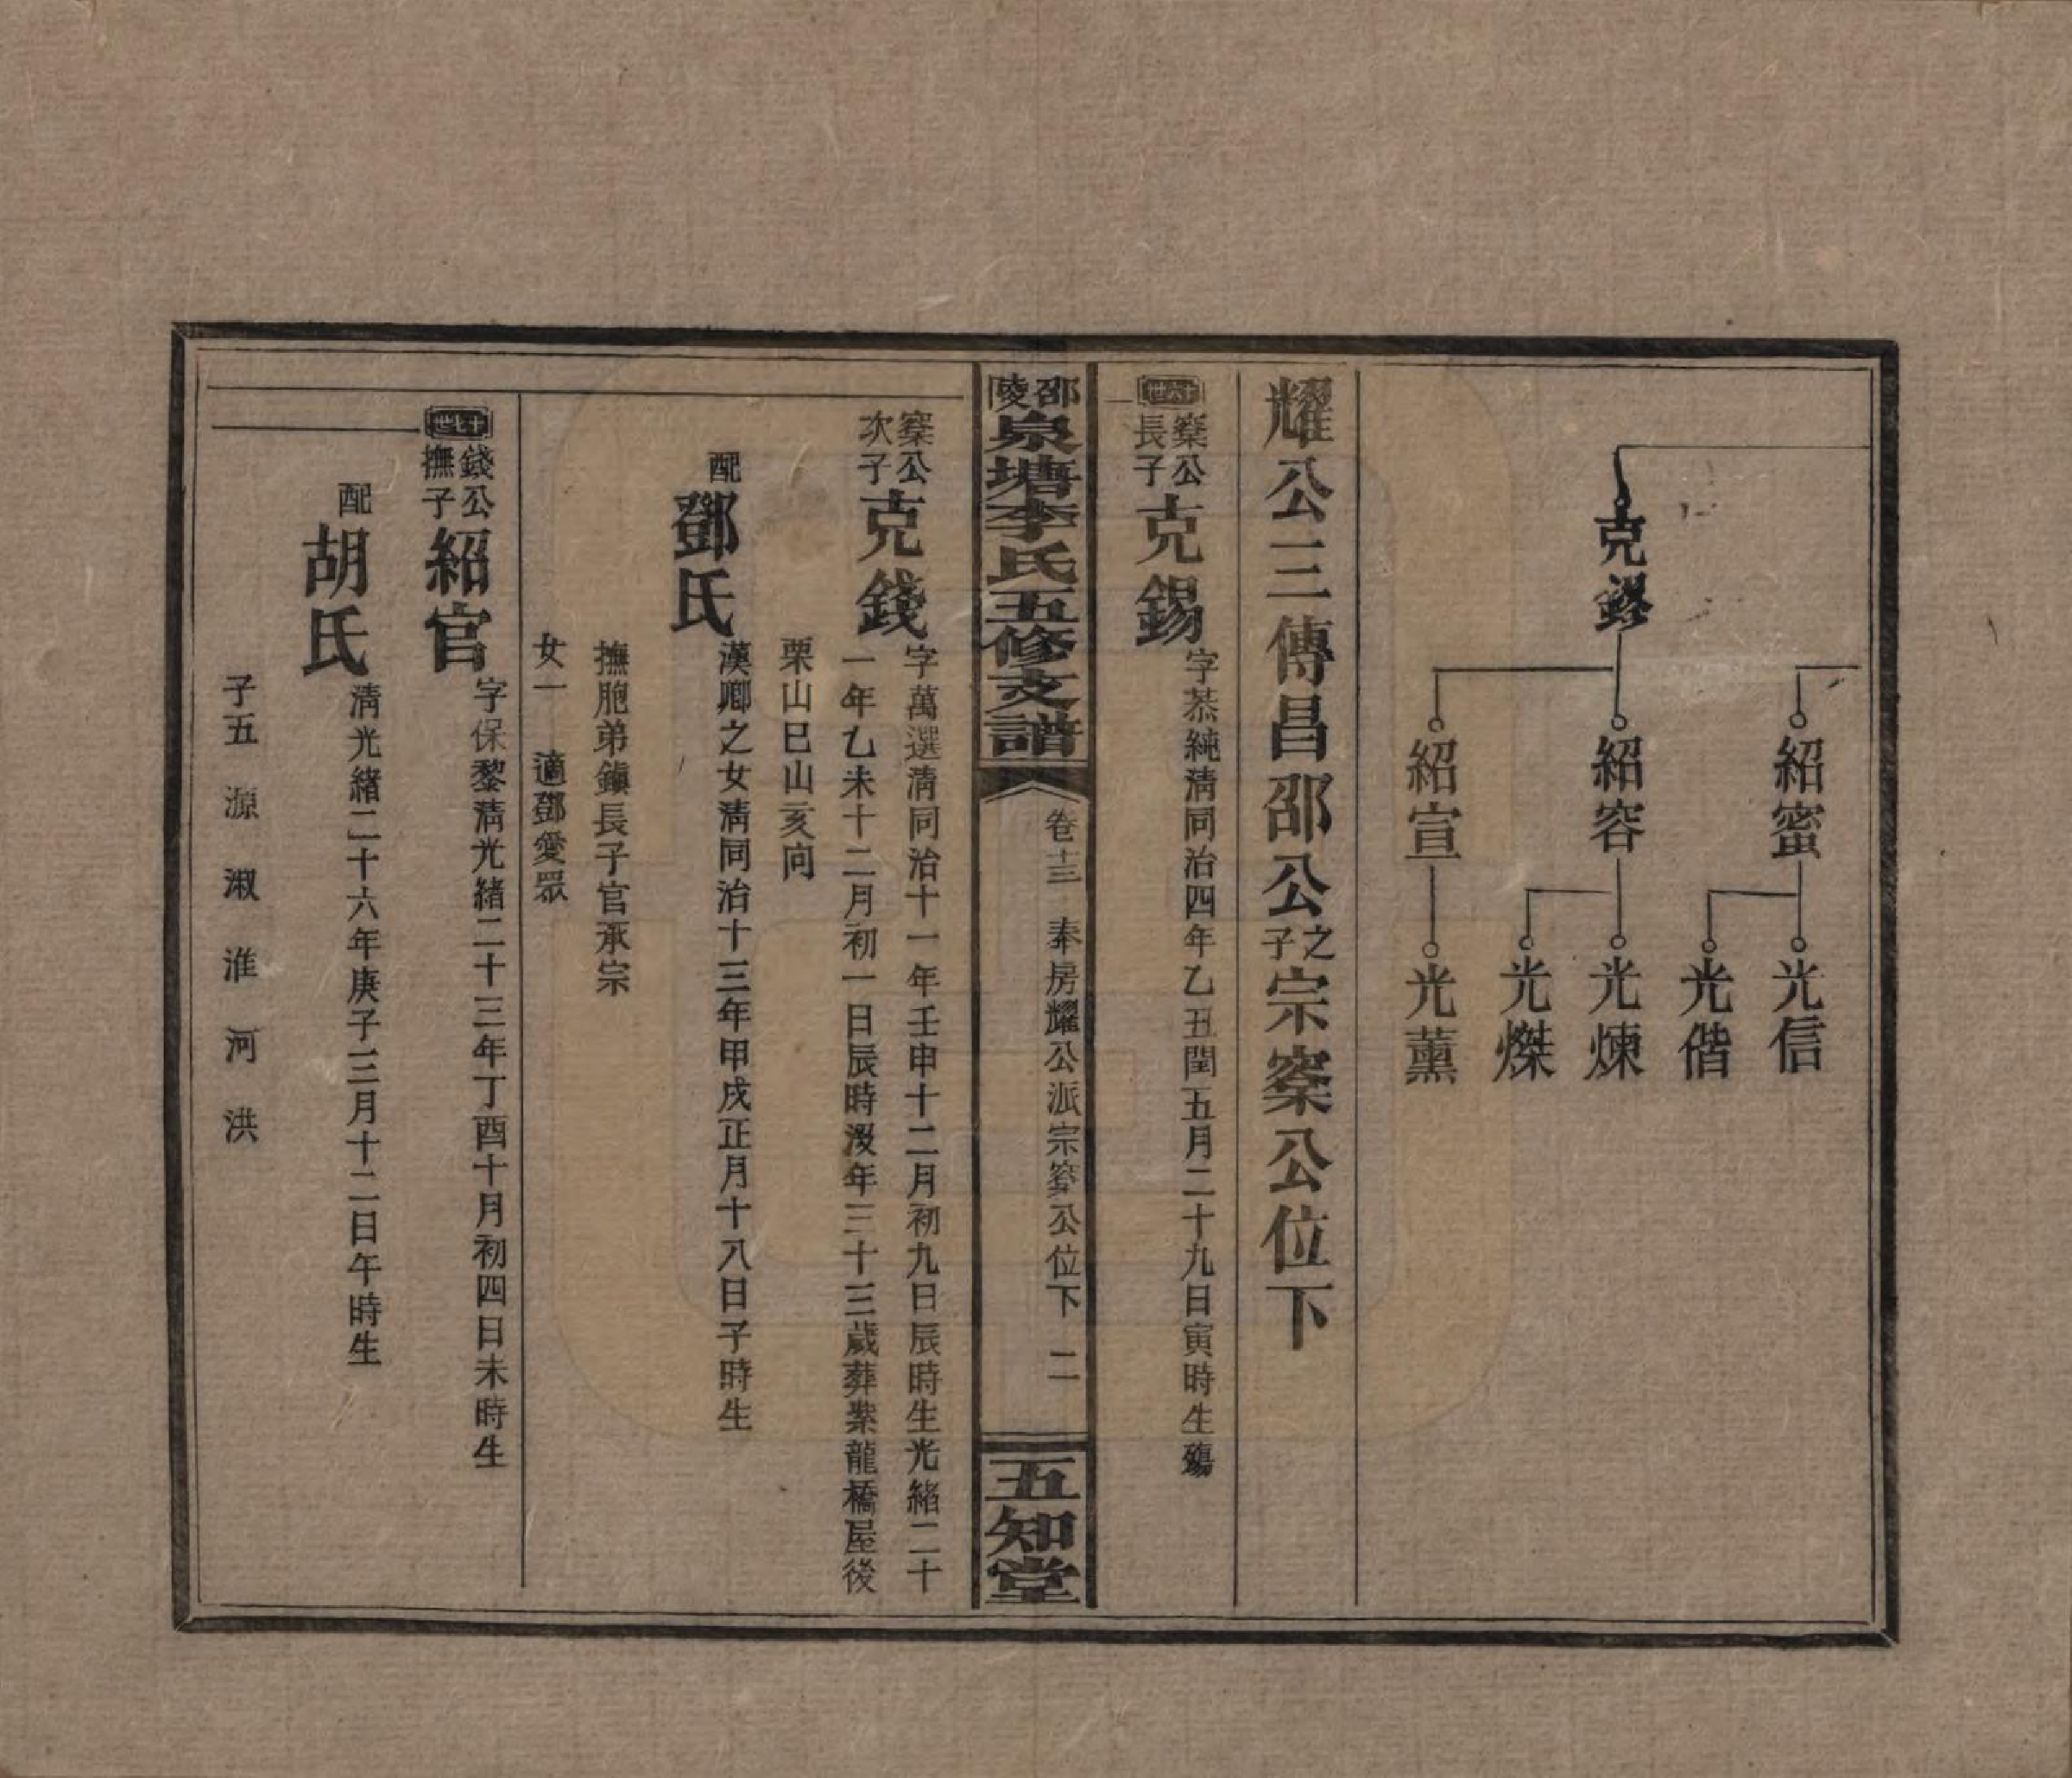 克鐸
紹蜜
紹容
紹宣
光信
光偕
光煉
光燦
光薰
耀公三傳昌邵公之子宗寀公位下
十六世
寀公長子
克錫
字恭純清同治四年乙丑閏五月二十九日寅時生殤
邵陵泉塘李氏五修支譜
卷十三
奉房耀公派宗寀公位下
二
五知堂
寀公次子
克錢
字萬選清同治十一年壬申十二月初九日辰時生光緒二十
一年乙未十二月初一日辰時沒年三十三歲葬紫龍橋屋後
栗山巳山亥向
配
鄧氏
漢卿之女清同治十三年甲戌正月十八日子時生
撫胞弟鎮長子官承宗
女一 適鄧愛眾
十七世
錢公撫子
紹官
字保黎清光緒二十三年丁酉十月初四日未時生
配
胡氏
清光緒二十六年庚子三月十二日午時生
子五 源 淑 淮 河 洪